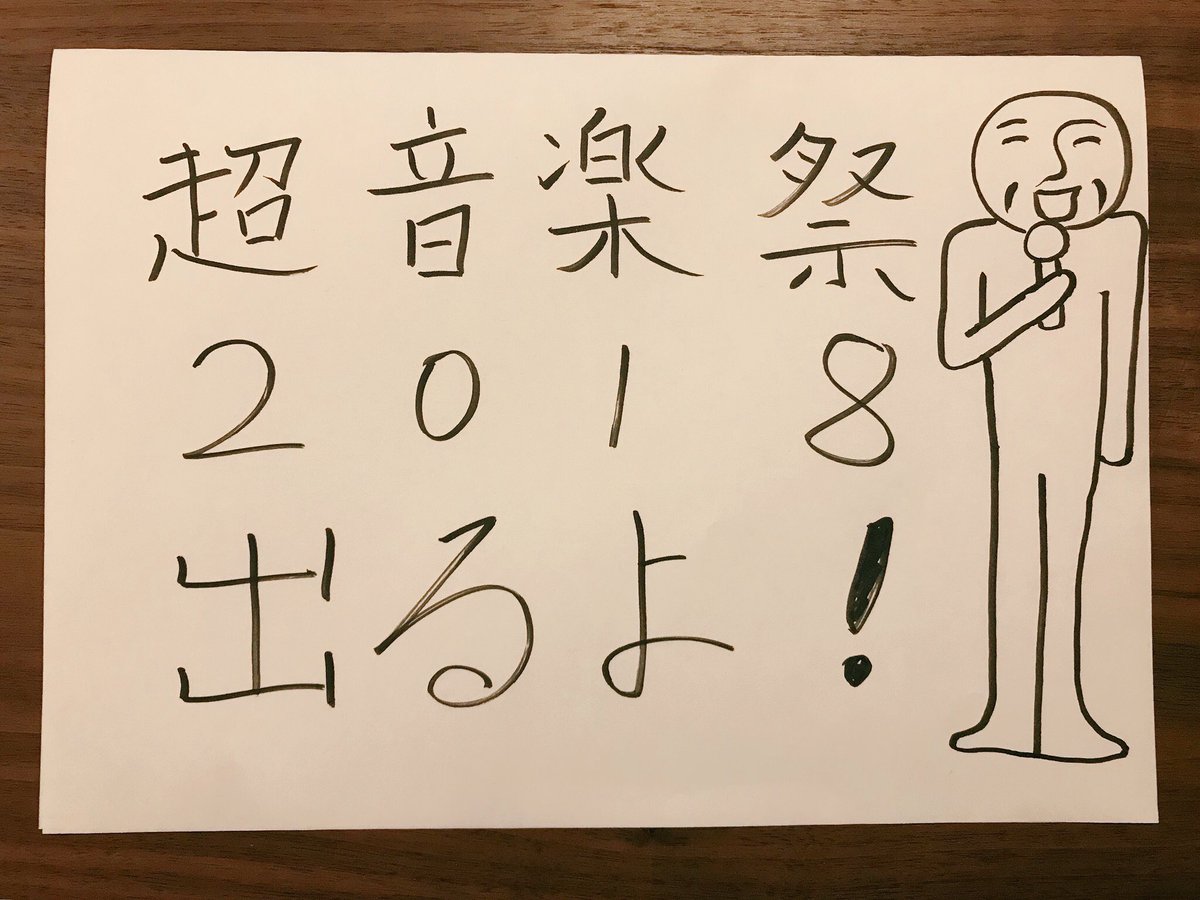 超音楽祭
2018
出るよ!